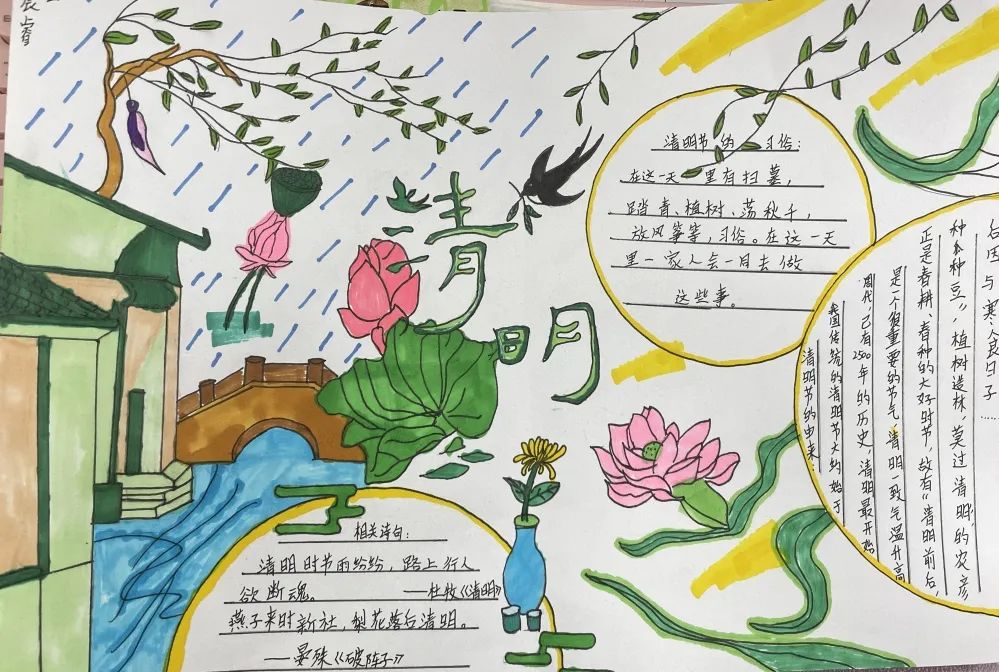 辰睿
清明
清明节的习俗:
在这一天里有扫墓,
踏青、植树、荡秋千,
放风筝等,习俗。在这一天
里一家人会一月去做
这些事。
清明节的由来:
我国传统的清明节大约始于
周代,已有2500年的历史,清明最开始
是一个很重要的节气,清明一致气温升高
正是春耕、春种的大好时节,故有“清明前后,
种瓜种豆”,植树造林,莫过清明”的农彦
后因与寒食日子……
相关诗句:
清明时节雨纷纷,路上行人
欲断魂。——杜牧《清明》
燕子来时新社,梨花落后清明。
——晏殊《破阵子》